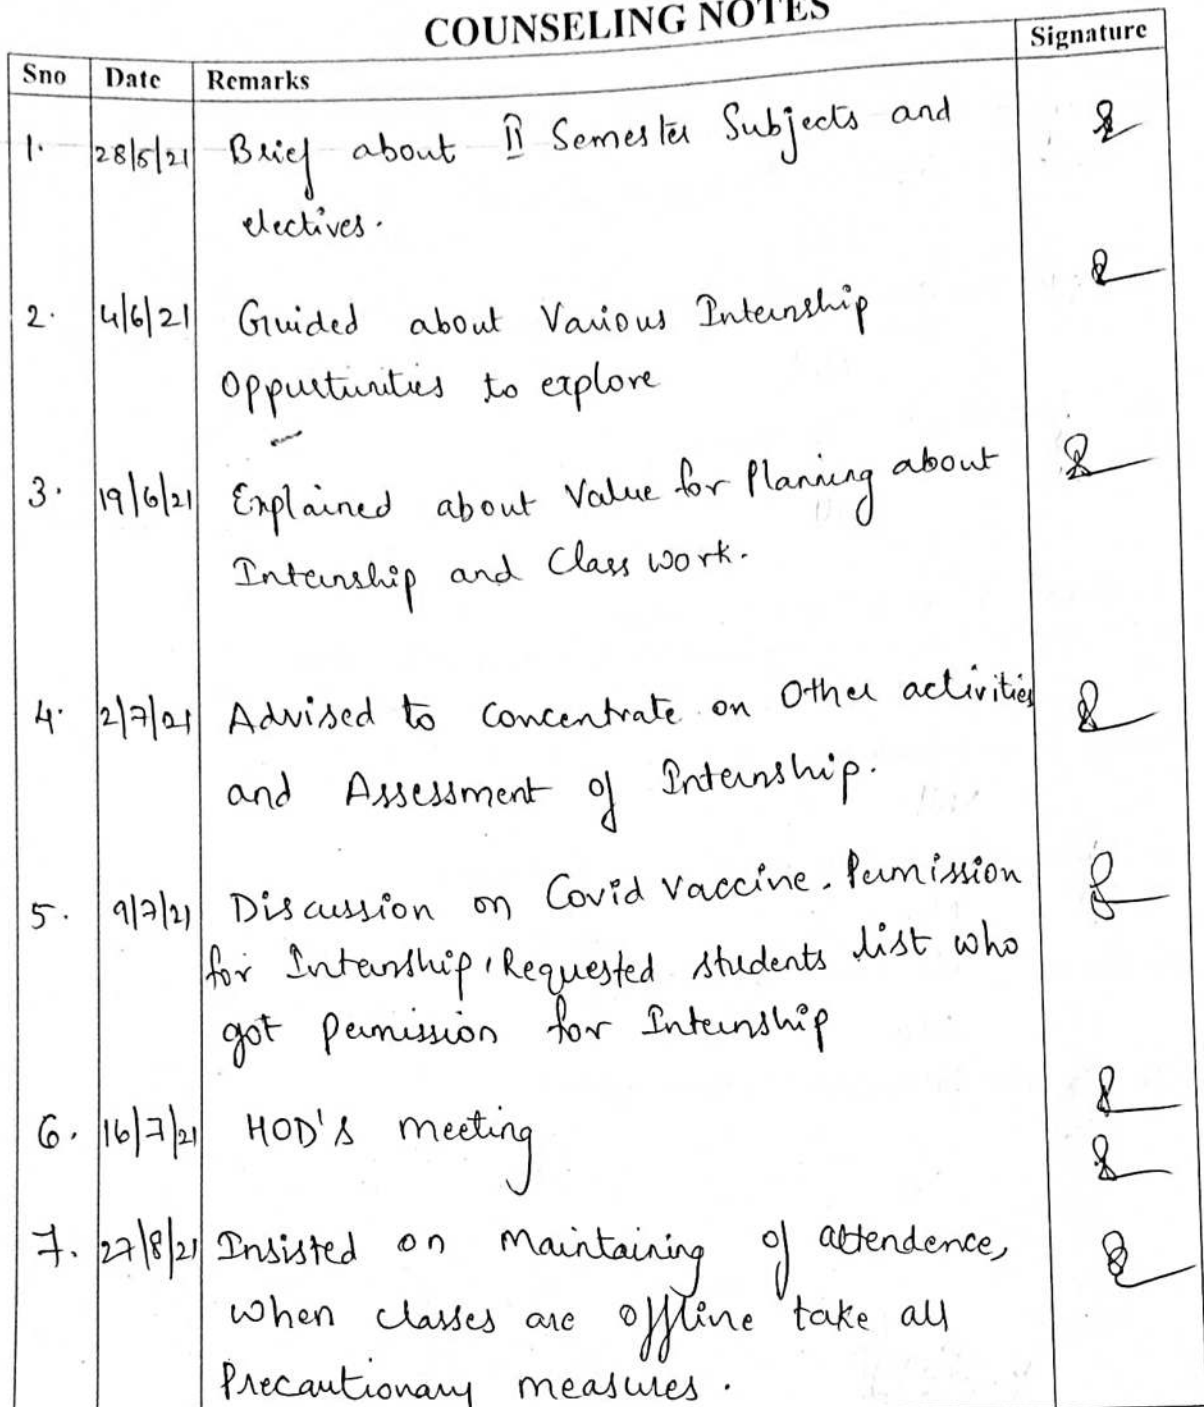 COUNSELING NOTES
Sno Date Remarks Signature
1. 28/5/21 Brief about II Semester Subjects and
electives.
2. 4/6/21 Guided about Various Internship
Oppurtunities to explore
3. 19/6/21 Explained about Value for Planning about
Internship and Class work.
4. 2/7/21 Advised to concentrate on Other activities
and Assessment of Internship.
5. 9/7/21 Discussion on Covid Vaccine. Permission
for Internship, Requested students list who
got permission for Internship
6. 16/7/21 HOD's meeting
7. 27/8/21 Insisted on Maintaining of attendence,
when classes are offline take all
Precautionary measures.